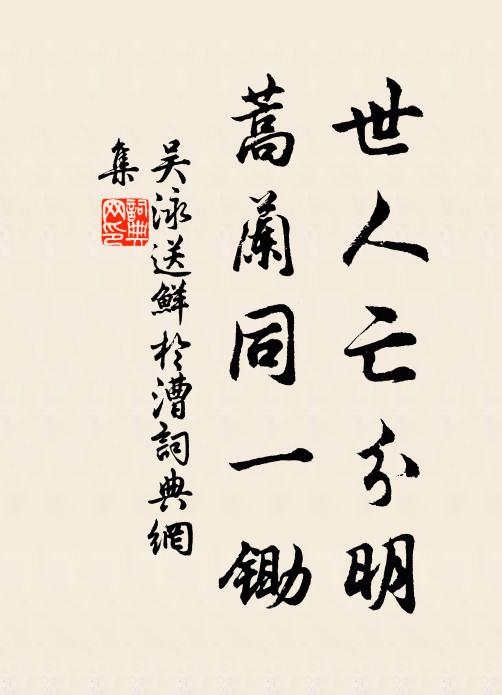 世人亡分明
蒿蘭同一鋤
吴泳送鮮於漕詞典網
集
詞典網印